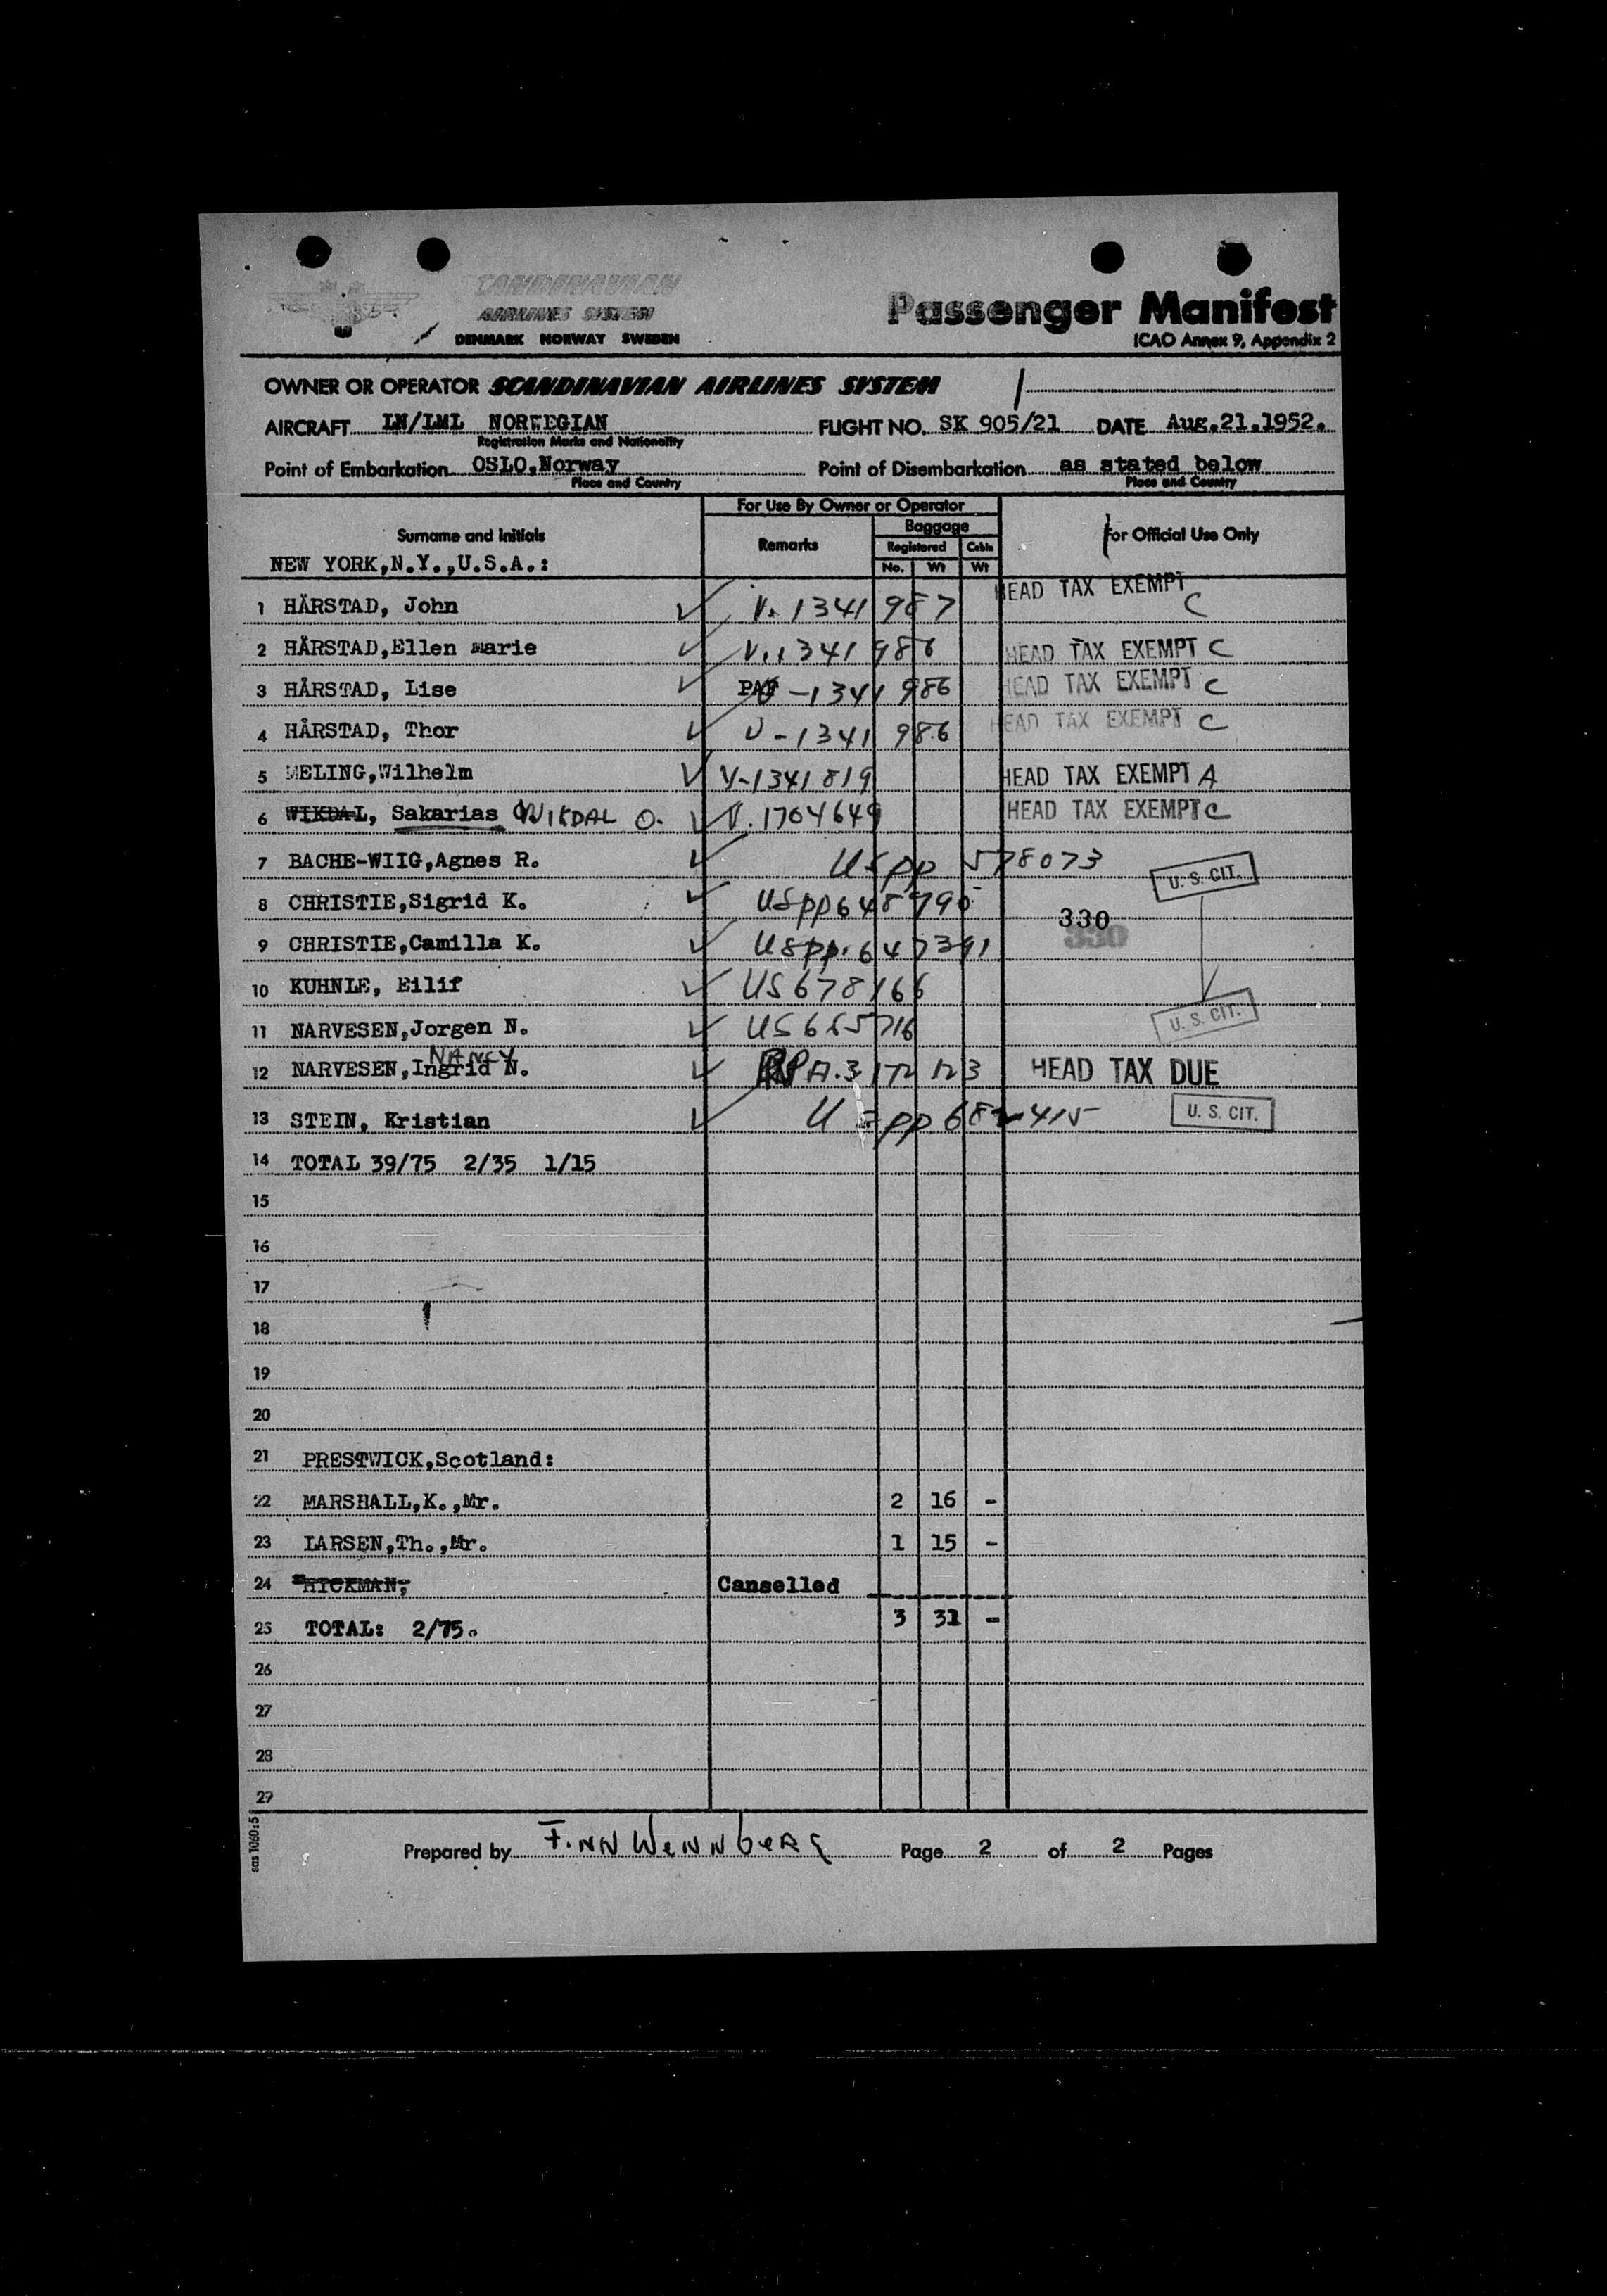 SCANDINAVIAN
AIRLINES SYSTEM
DENMARK NORWAY SWEDEN
Passenger Manifest
ICAO Annex 9, Appendix 2
OWNER OR OPERATOR SCANDINAVIAN AIRLINES SYSTEM
AIRCRAFT LN/LML NORWEGIAN FLIGHT NO. SK 905/21 DATE Aug.21.1952.
Registration Marks and Nationality
Point of Embarkation OSLO,Norway Point of Disembarkation as stated below
Place and Country Place and Country
For Use By Owner or Operator
Surname and Initials Remarks Baggage For Official Use Only
Registered Cabin
NEW YORK,N.Y.,U.S.A.: No. Wt Wt
1 HÅRSTAD, John V. 1341 987 HEAD TAX EXEMPT C
2 HÅRSTAD,Ellen marie V. 1341 986 HEAD TAX EXEMPT C
3 HÅRSTAD, Lise V-1341 986 HEAD TAX EXEMPT C
4 HÅRSTAD, Thor V-1341 986 HEAD TAX EXEMPT C
5 MELING,Wilhelm V-1341819 HEAD TAX EXEMPT A
6 WIKDAL, Sakarias WIKDAL O. V. 1704649 HEAD TAX EXEMPT C
7 BACHE-WIIG,Agnes R. US pp 578073 U. S. CIT.
8 CHRISTIE,Sigrid K. US pp 648790 330
9 CHRISTIE,Camilla K. US pp. 647391 330
10 KUHNLE, Eilif US 678166
11 NARVESEN,Jorgen N. US 655716 U. S. CIT.
NANCY
12 NARVESEN,Ingrid N. A.3172123 HEAD TAX DUE
13 STEIN, Kristian US pp 682415 U. S. CIT.
14 TOTAL 39/75 2/35 1/15
15
16
17
18
19
20
21 PRESTWICK,Scotland:
22 MARSHALL,K.,Mr. 2 16 -
23 LARSEN,Th.,Mr. 1 15 -
24 HICKMAN, Canselled
25 TOTAL: 2/75. 3 31 -
26
27
28
29
sas 1060:5
Prepared by FINN WENNBERG Page 2 of 2 Pages